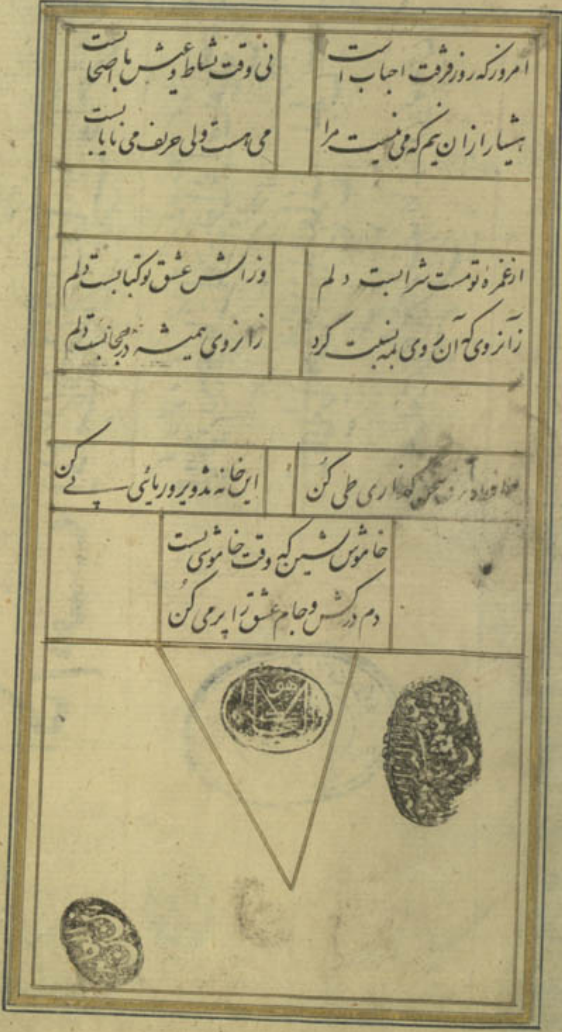 امروز که روز فرقت احباب است
نی وقت نشاط و عیش با اصحابست
هشیار ازان نیم که می نیست مرا
می هست ولی حریف می نایابست
از غمزهٔ تو مست شرابست دلم
وز آتش عشق تو کبابست دلم
زآنروی که آن روی به نسبت کرد
زانروی همیشه در حجابست دلم
طی کن
این خانه پی کن
خاموش نشین که وقت خاموشی است
دم درکش و جام عشق را پر می کن